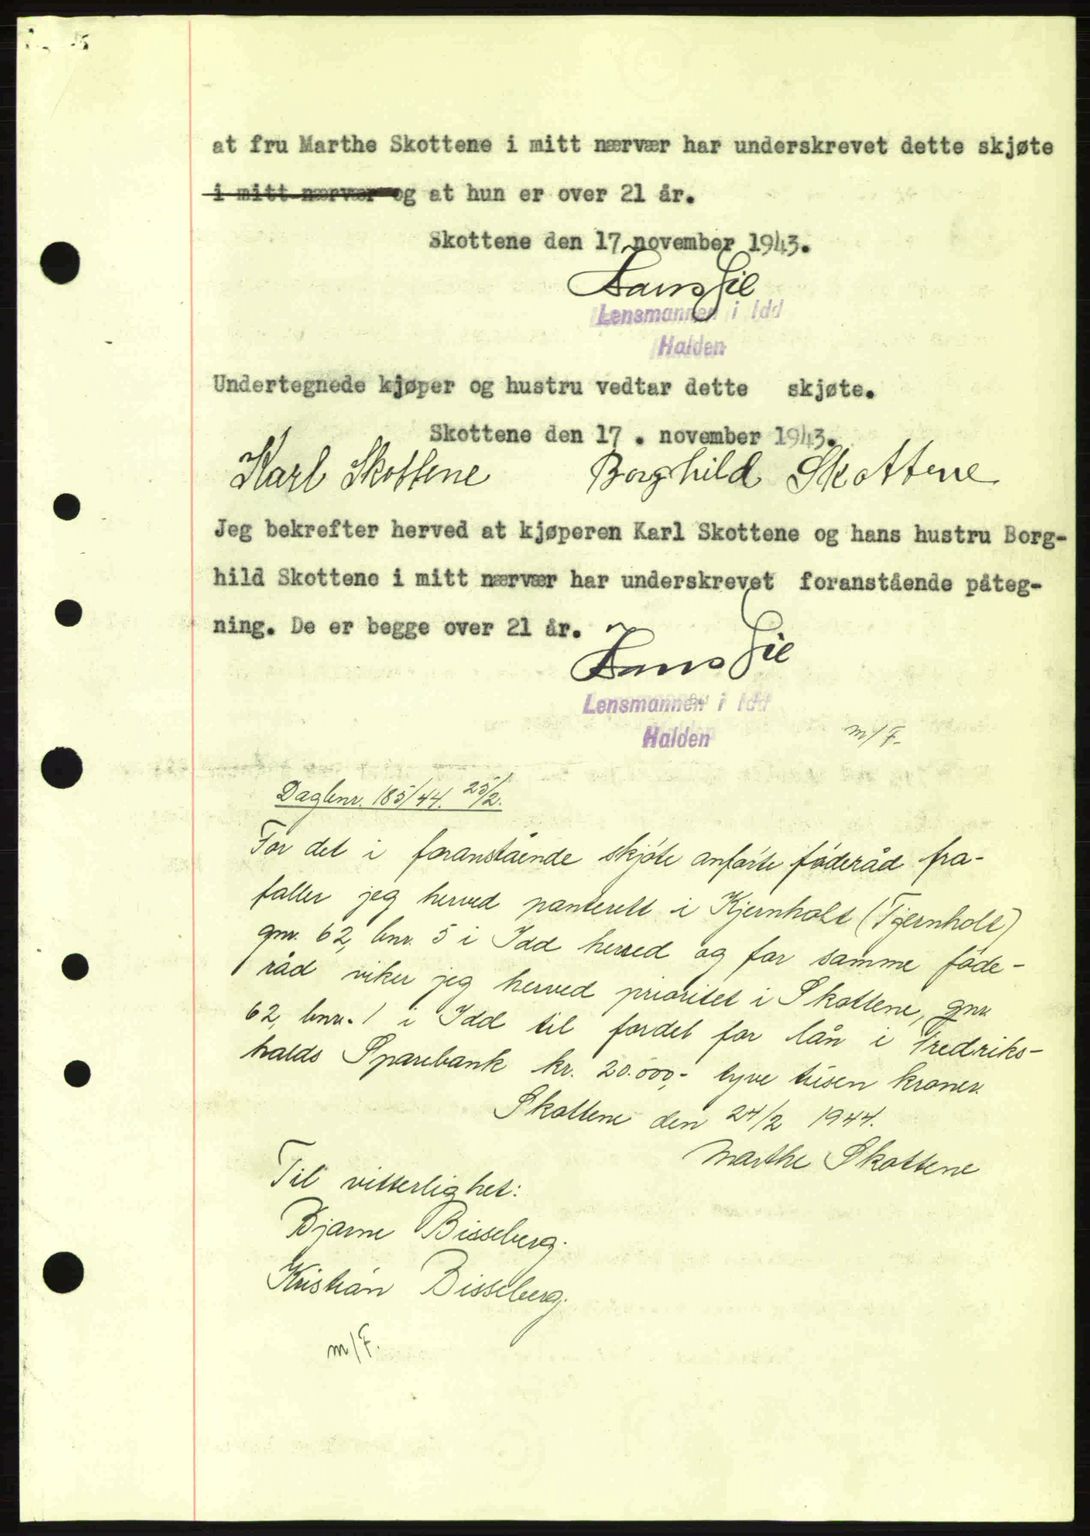 at fru Marthe Skottene i mitt nærvær har underskrevet dette skjøte
i mitt nærvær og at hun er over 21 år.
Skottene den 17 november 1943.
Lensmannen i Idd
Halden
Undertegnede kjøper og hustru vedtar dette skjøte.
Skottene den 17 . november 1943.
Karl Skottene Borghild Skottene
Jeg bekrefter herved at kjøperen Karl Skottene og hans hustru Borg-
hild Skottene i mitt nærvær har underskrevet foranstående påteg-
ning. De er begge over 21 år.
Lensmannen i Idd
Halden
m/F.
Dagbnr. 185/44. 25/2.
For det i foranstående skjøte anførte føderåd fra-
faller jeg herved panterett i Kjernholt (Tjernholt)
gnr. 62, bnr. 5 i Idd herred og for samme føde-
råd viker jeg herved prioritet i Skottene, gnr.
62, bnr. 1 i Idd til fordel for lån i Fredriks-
halds Sparebank kr. 20.000,- tyve tusen kroner.
Skottene den 24/2 1944.
Marthe Skottene
Til vitterlighet:
Bjarne Bisseberg.
Kristian Bisseberg.
m/F.